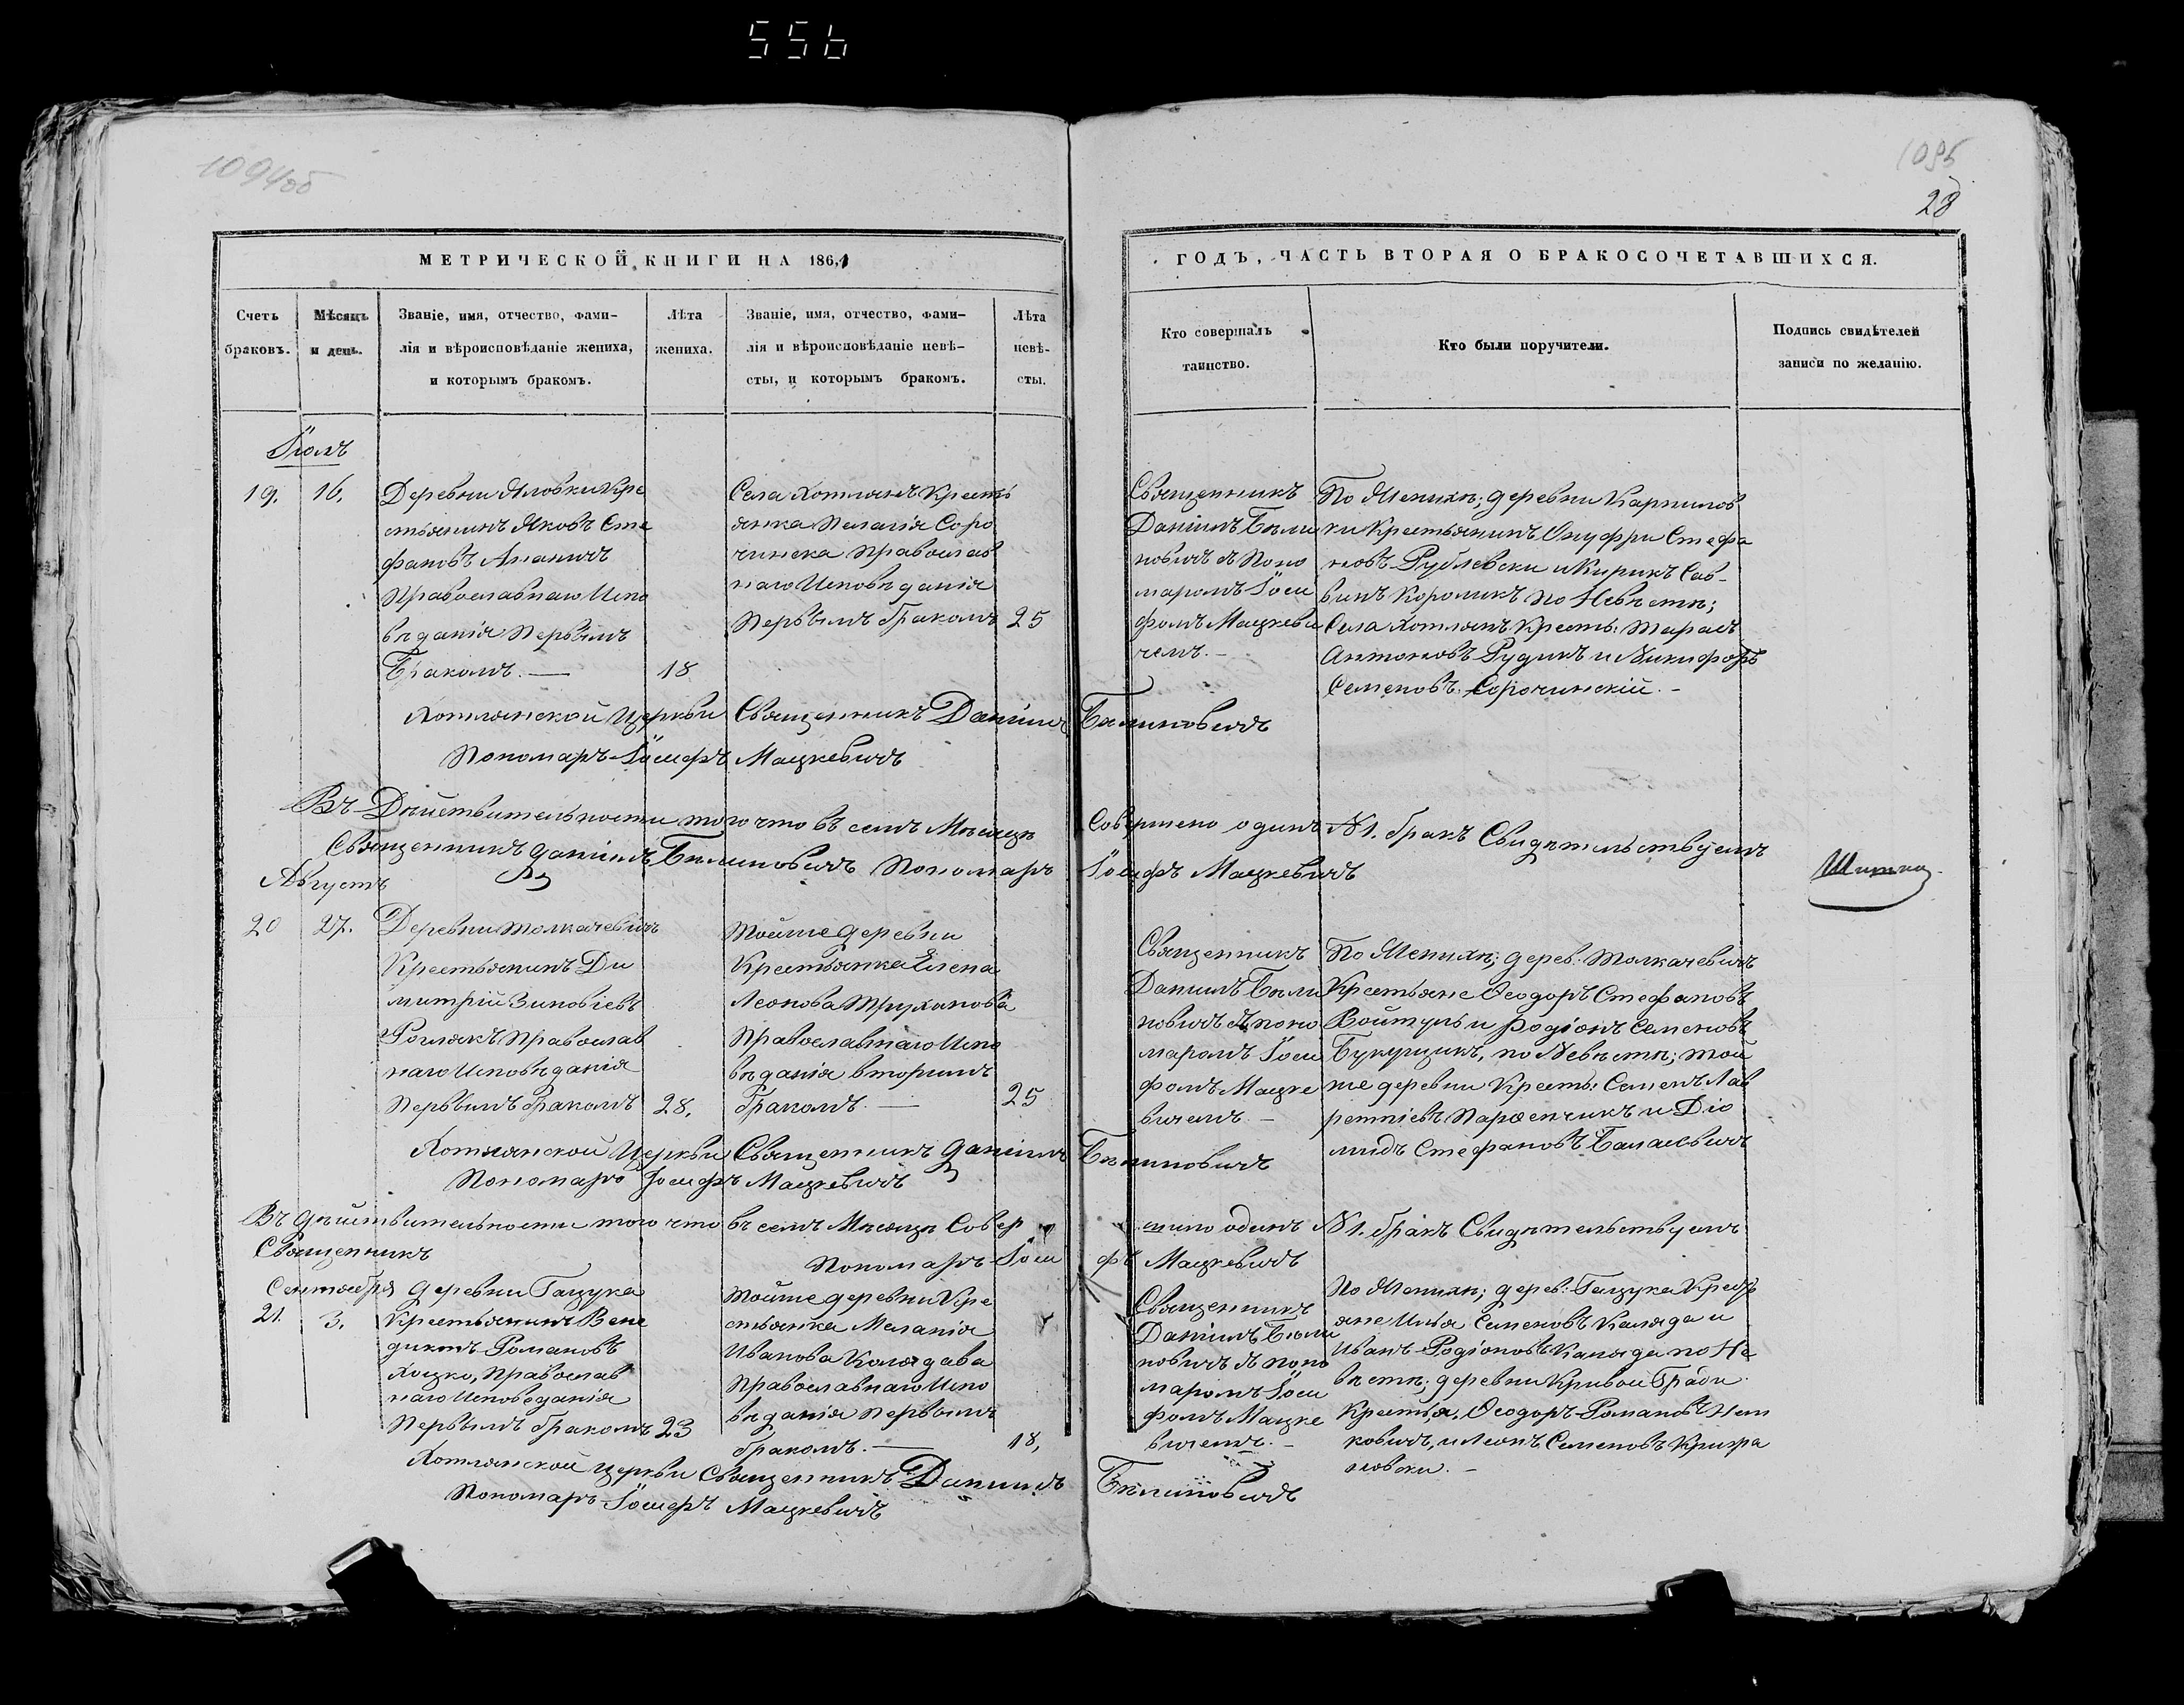 556
1094об
1095
28
МЕТРИЧЕСКОЙ КНИГИ НА 1861
Счетъ браковъ.
Мѣсяцъ и день.
Званіе, имя, отчество, фами-
лія и вѣроисповѣданіе жениха,
и которымъ бракомъ.
Лѣта жениха.
Званіе, имя, отчество, фами-
лія и вѣроисповѣданіе невѣ-
сты, и которымъ бракомъ.
Лѣта невѣ-
сты.
ГОДЪ, ЧАСТЬ ВТОРАЯ О БРАКОСОЧЕТАВШИХСЯ.
Кто совершалъ
таинство.
Кто были поручители.
Подпись свидѣтелей
записи по желанію.
Іюль
19. 16.
Деревни Яловки Кре
стьянинъ Яковъ Сте
фановъ Ананичъ
Православнаго Испо
вѣданія Первымъ
Бракомъ. — 18
Села Хотлянъ Кресть
янка Пелагія Соро
чинска Православ
наго Исповѣданія
Первымъ бракомъ 25
Священникъ
Даніилъ Бѣли
новичъ съ Поно
маромъ Іоси
фомъ Мацкеви
чемъ. —
По Женихѣ; деревни Карпилов
ки Крестьянинъ Онуфри Стефа
новъ Рублевски и Кирикъ Сав-
винъ Короликъ По Невѣстѣ;
Села Хотлянъ Кресть: Тарасъ
Антоновъ Рудикъ и Никифоръ
Семеновъ Сорочинскій. —
Хотлянской Церкви Священникъ Даніилъ Бѣлиновичъ
Пономаръ Іосифъ Мацкевичъ
Въ Дѣйствительности того что въ семъ Мѣсяцѣ Совершено одинъ №1. бракъ Свидѣтельствуемъ
Священникъ Даніилъ Бѣлиновичъ Пономаръ Іосифъ Мацкевичъ
Августъ
20 27.
Деревни Толкачевичъ
Крестьянинъ Ди
митрій Зиновіевъ
Роглякъ Православ
наго Исповѣданія
Первымъ бракомъ 28.
Тойже деревни
Крестьянка Елена
Леонова Труханова
Православнаго Испо
вѣданія вторымъ
бракомъ. — 25
Священникъ
Даніилъ Бѣли
новичъ съ поно
маромъ Іоси
фомъ Мацке
вичемъ. —
По Женихѣ; дерев: Толкачевичъ
Крестьяне Ѳеодоръ Стефановъ
Войтуль и Родіонъ Семеновъ
Букущикъ, по Невѣстѣ; той
же деревни Кресть: Семенъ Лав
рентіевъ Парфенчикъ и Діо
мидъ Стефановъ Баласевичъ
Хотлянской Церкви Священникъ Даніилъ Бѣлиновичъ
Пономаръ Іосифъ Мацкевичъ
Въ дѣйствительности того что въ семъ Мѣсяцѣ Совер шино одинъ №1. бракъ Свидѣтельствуемъ
Священникъ Пономаръ Іоси фъ Мацкевичъ
Сентября
21. 3.
Деревни Гацука
Крестьянинъ Вене
диктъ Романовъ
Хоцко, Православ
наго Исповеданія
Первымъ бракомъ 23
Тойже деревни Кре
стьянка Меланія
Иванова Колядава
Православнаго Испо
вѣданія первымъ
бракомъ. — 18,
Священникъ
Даніилъ Бѣли
новичъ съ поно
маромъ Іоси
фомъ Мацке
вичемъ. —
По Женихѣ; дерев: Гацука Кресть
яне Илья Семеновъ Каляда и
Иванъ Родіоновъ Каляда по Не
вѣстѣ; деревни Кривой Гряди
Крестья. Ѳеодоръ Романовъ
ковичъ, и Леонъ Семеновъ
новски. —
Хотлянской церкви Священникъ Даніилъ Бѣлиновичъ
Пономаръ Іосифъ Мацкевичъ